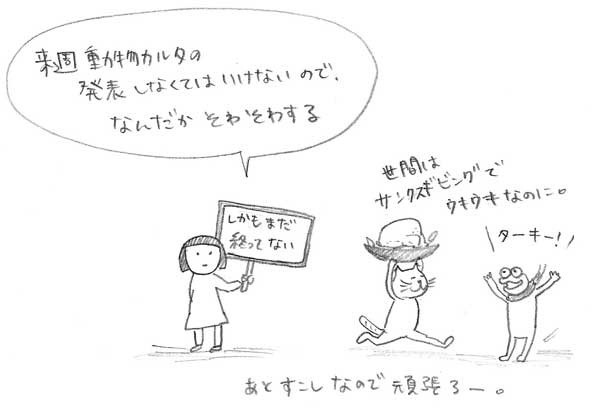 来週動物カルタの
発表しなくてはいけないので、
なんだか そわそわする
しかもまだ
終ってない
世間は
サンクスギビングで
ウキウキなのに。
ターキー!
あとすこしなので頑張ろー。